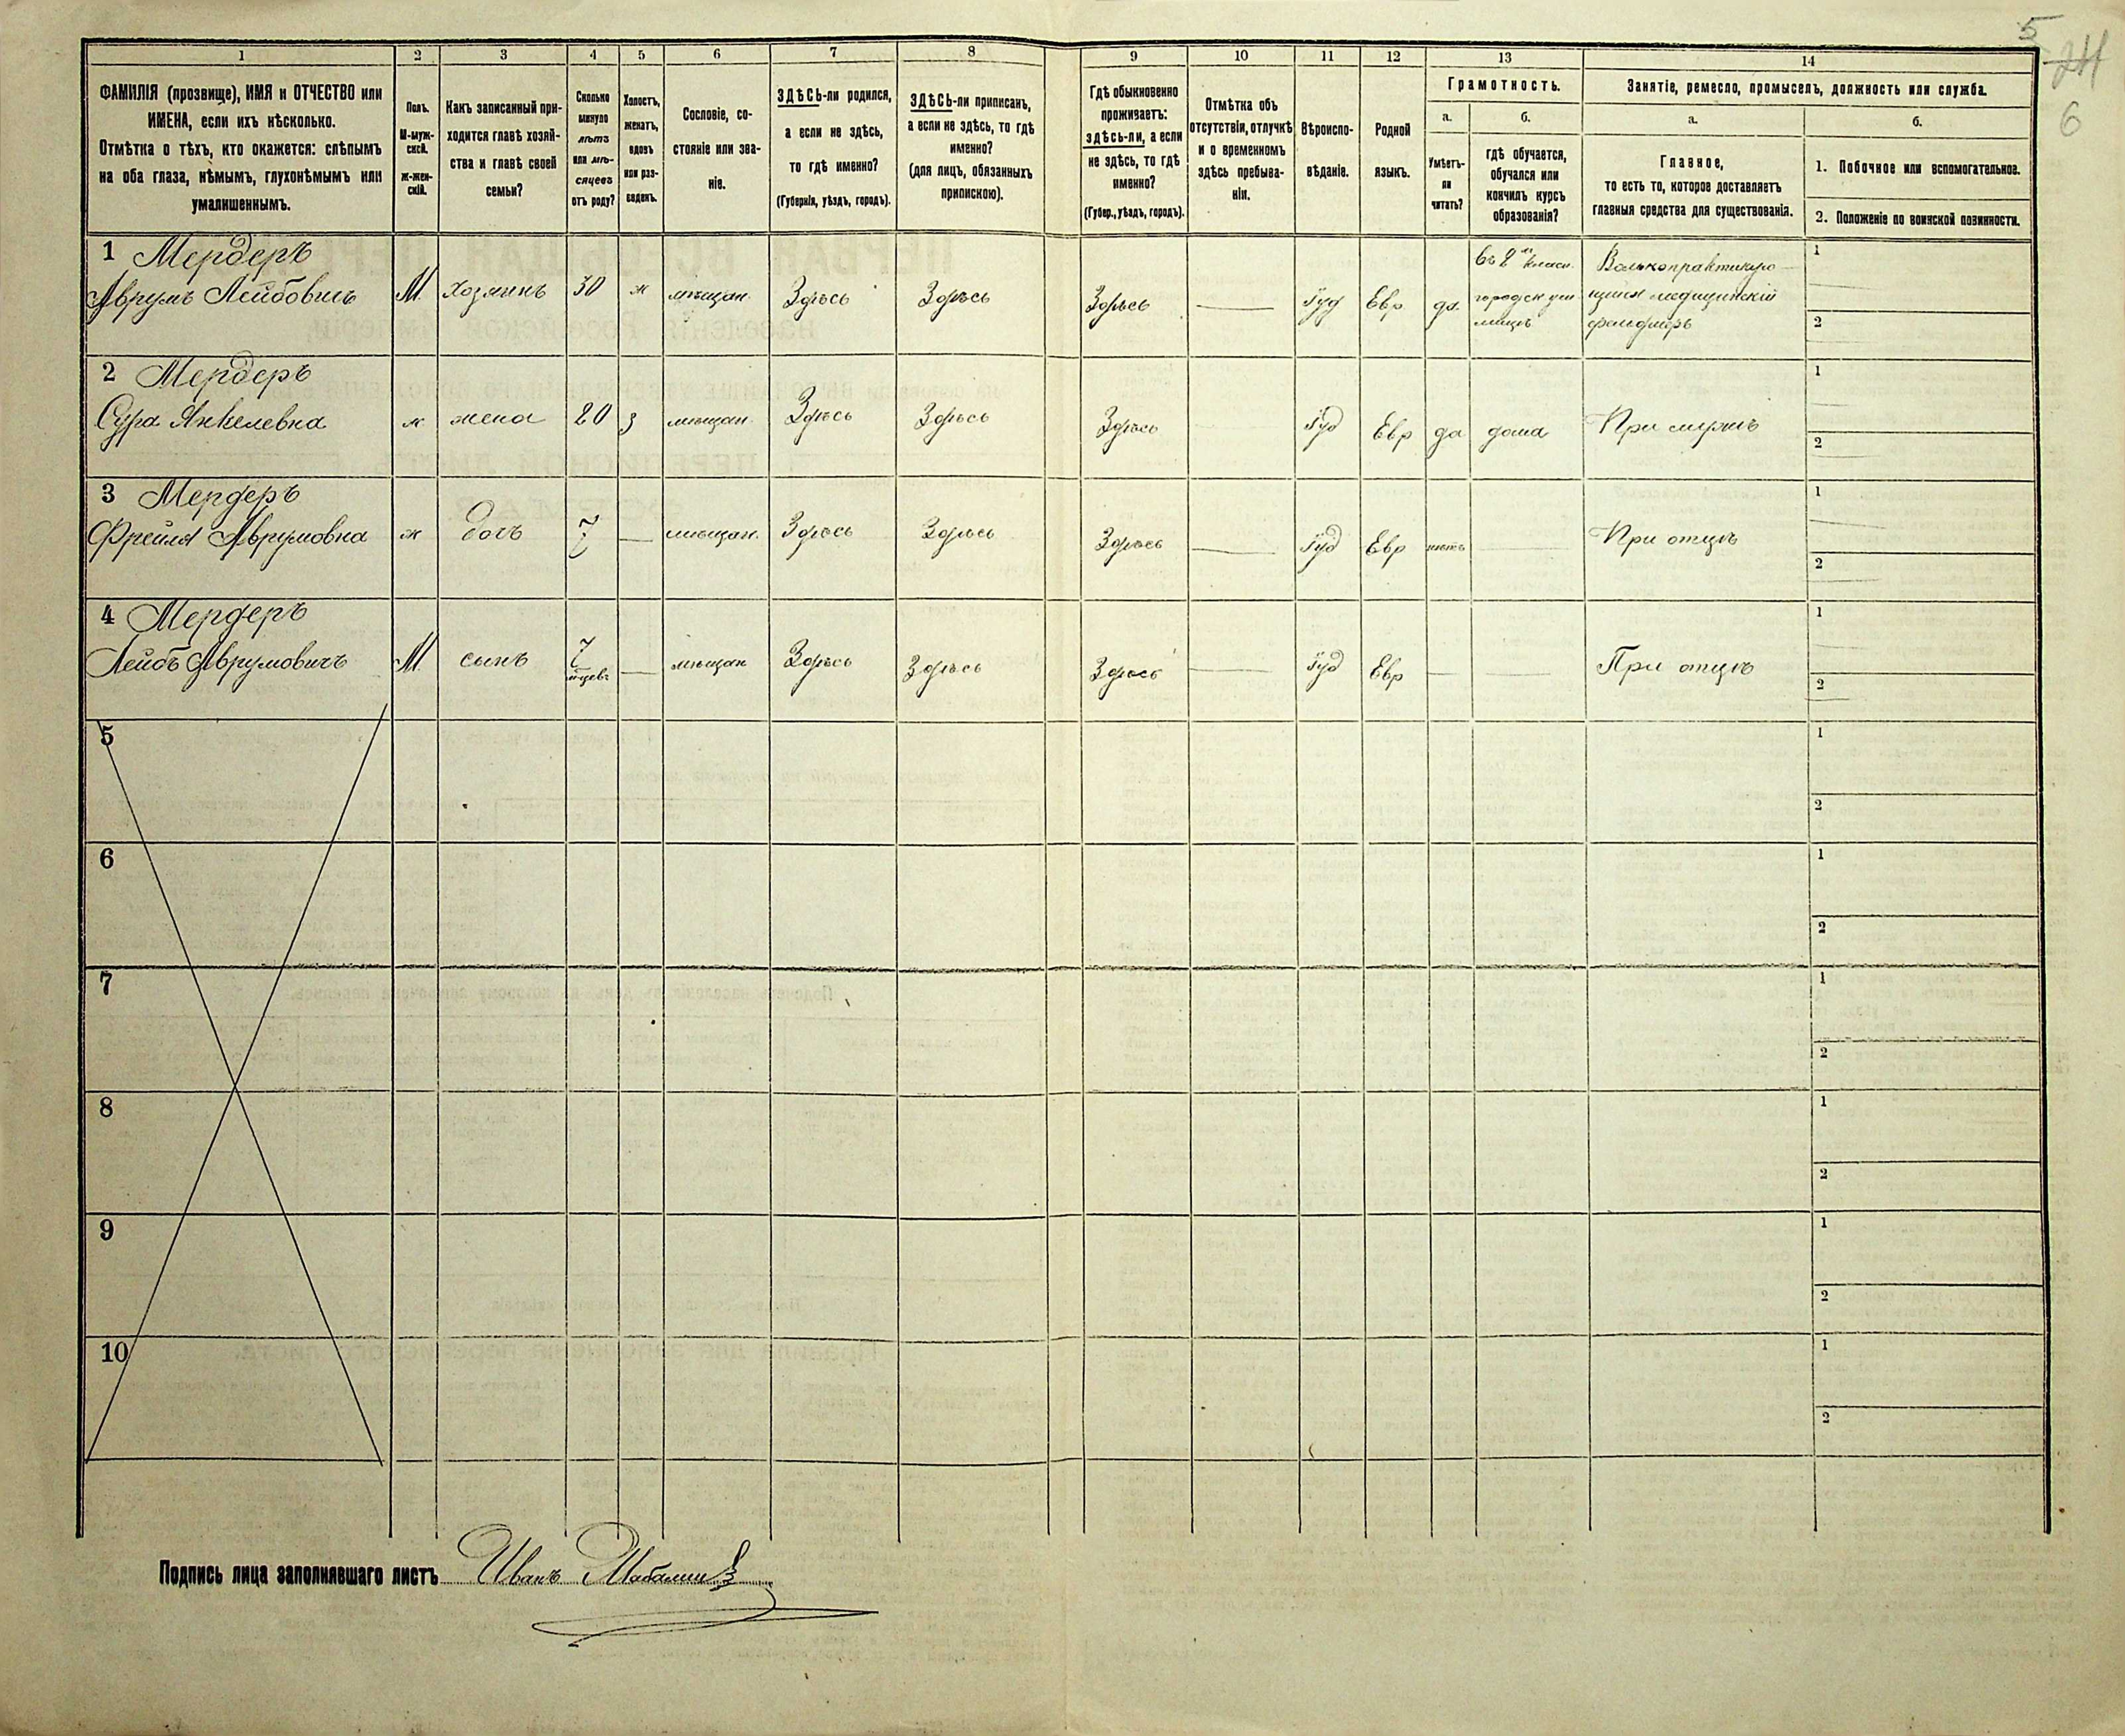 5
24
6
1 2 3 4 5 6 7 8 9 10 11 12 13 14
ФАМИЛІЯ (прозвище), ИМЯ и ОТЧЕСТВО или
ИМЕНА, если ихъ нѣсколько.
Отмѣтка о тѣхъ, кто окажется: слѣпымъ
на оба глаза, нѣмымъ, глухонѣмымъ или
умалишеннымъ.
Полъ.
М-муж-
ской.
Ж-жен-
скій.
Какъ записанный при-
ходится главѣ хозяй-
ства и главѣ своей
семьи?
Сколько
минуло
лѣтъ
или мѣ-
сяцевъ
отъ роду?
Холостъ,
женатъ,
вдовъ
или раз-
веденъ.
Сословіе, со-
стояніе или зва-
ніе.
ЗДѢСЬ-ли родился,
а если не здѣсь,
то гдѣ именно?
(Губернія, уѣздъ, городъ).
ЗДѢСЬ-ли приписанъ,
а если не здѣсь, то гдѣ
именно?
(для лицъ, обязанныхъ
припискою).
Гдѣ обыкновенно
проживаетъ:
здѣсь-ли, а если
не здѣсь, то гдѣ
именно?
(Губер., уѣздъ, городъ).
Отмѣтка объ
отсутствіи, отлучкѣ
и о временномъ
здѣсь пребыва-
ніи.
Вѣроиспо-
вѣданіе.
Родной
языкъ.
Грамотность.
а.
Умѣетъ-
ли
читать?
б.
гдѣ обучается,
обучался или
кончилъ курсъ
образованія?
Занятіе, ремесло, промыселъ, должность или служба.
а.
Главное,
то есть то, которое доставляетъ
главныя средства для существованія.
б.
1. Побочное или вспомогательное.
2. Положеніе по воинской повинности.
1 Мердеръ
Аврумъ Лейбовичъ М. хозяинъ 30 ж мѣщан. Здѣсь Здѣсь Здѣсь — Іуд Евр да.
въ 2м класн.
городск учи-
лищѣ
Вольнопрактикую-
щійся медицинскій
фельдшеръ
1
2
2 Мердеръ
Сура Янкелевна ж жена 20 з мѣщан Здѣсь Здѣсь Здѣсь Іуд Евр да дома При мужѣ
1
2
3 Мердеръ
Фрейля Аврумовна ж дочь 7 — мѣщан. Здѣсь Здѣсь Здѣсь — Іуд Евр нѣтъ — При отцѣ
1
2
4 Мердеръ
Лейбъ Аврумовичъ М. сынъ 7 — мѣщан Здѣсь Здѣсь Здѣсь — Іуд Евр — — При отцѣ
1
2
5
1
2
6
1
2
7
1
2
8
1
2
9
1
2
10
1
2
Подпись лица заполнявшаго листъ Иванъ